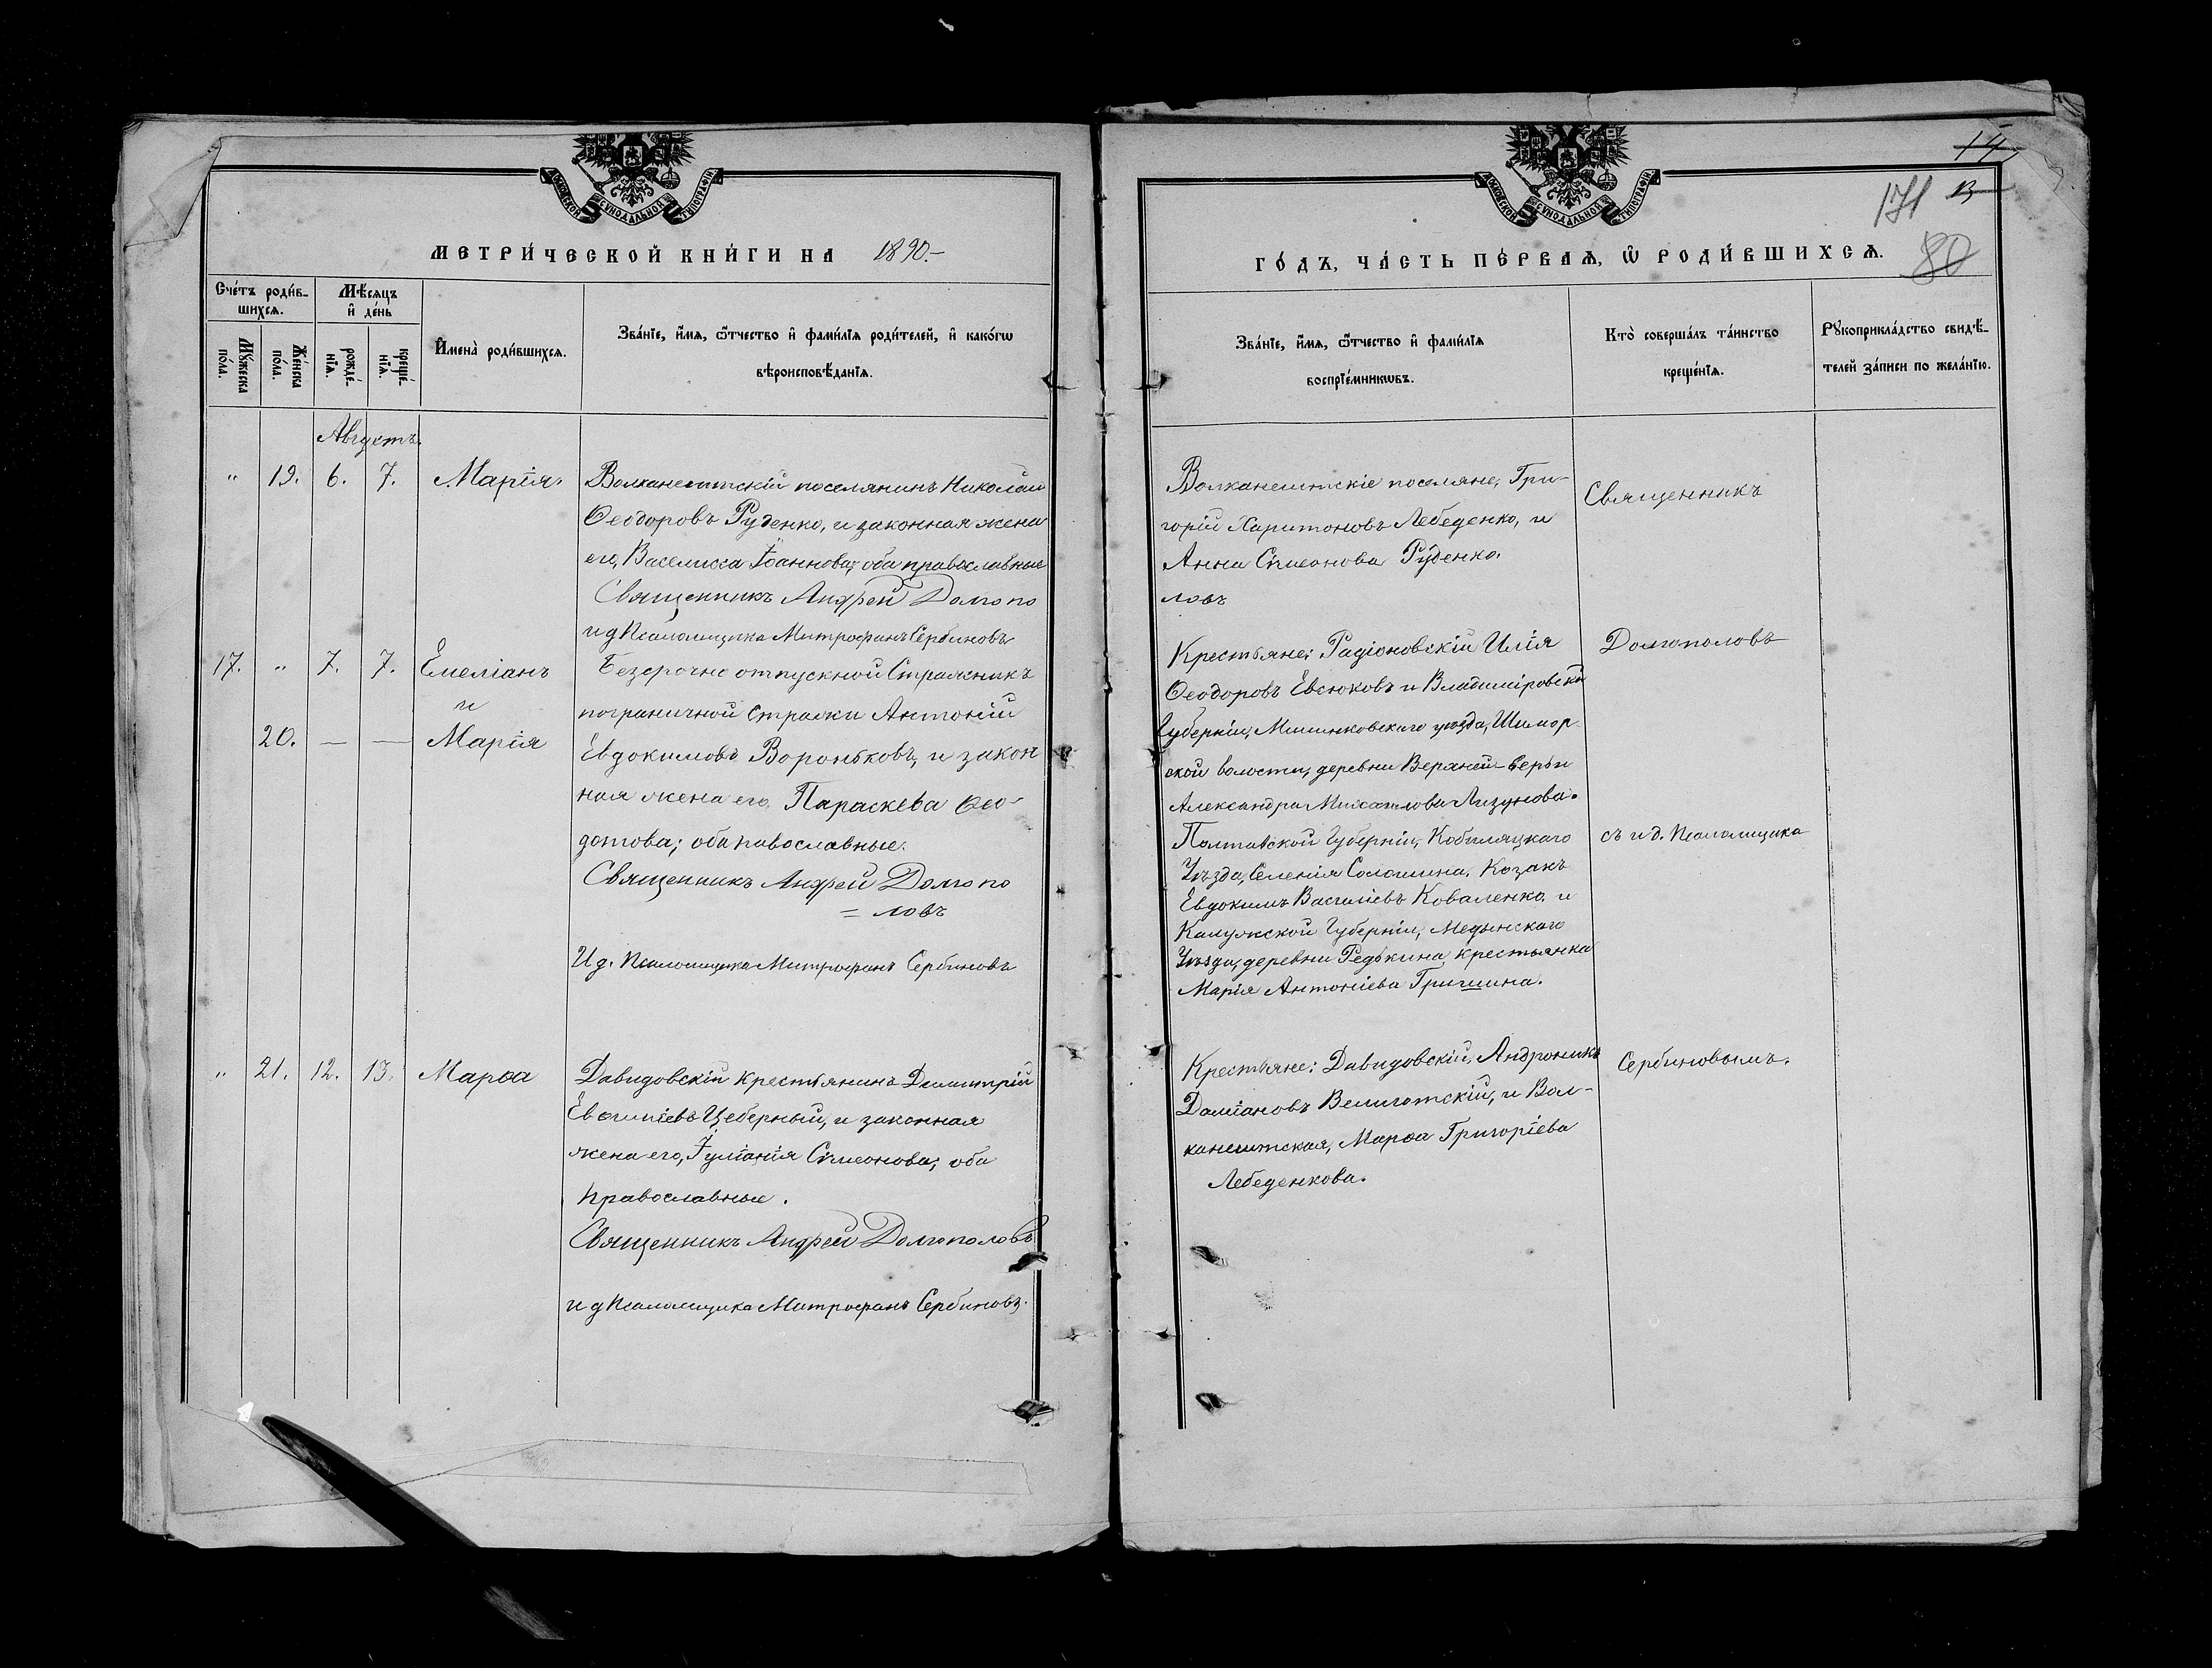 МОСКОВСКОЙ СѴНОДАЛЬНОЙ ТИПОГРАФІИ
МЕТРИ́ЧЕСКОЙ КНИ́ГИ НА 1890.-
Сче́тъ роди́в-
шихсѧ.
Мѣ́сѧцъ
и҆ де́нь
Мꙋ́жеска
по́ла.
Же́нска
по́ла.
рожде́-
нїѧ.
креще́-
нїѧ.
И҆мена̀ роди́вшихсѧ.
Зва́нїе, и҆́мѧ, ѻ҆́тчество и҆ фамѝлїѧ роди́телей, и҆ како́гѡ
вѣроисповѣ́данїѧ.
Августъ.
" 19. 6. 7. Марія.
Волканештскій поселянинъ Николай
Ѳеодоровъ Руденко, и законная жена
его, Василиса Іоаннова; оба православные
Священникъ Андрей Долгопо
ловъ
и д Псаломщика Митрофанъ Сербиновъ
17. " 7. 7. Емеліанъ
и
20. — — Марія
Безсрочно отпускной Стражникъ
пограничной стражи Антоній
Евдокимовъ Вороньковъ, и закон
ная жена его Параскева Ѳео-
дотова; оба павославные.
Священникъ Андрей Долгопо
= ловъ
И д. Псаломщика Митрофанъ Сербиновъ
" 21. 12. 13. Марѳа
Давидовскій крестьянинъ Димитрій
Евѳиміевъ Цеберный, и законная
жена его, Іуліанія Сѵмеонова; оба
православные.
Священникъ Андрей Долгополовъ
и д Псаломщика Митрофанъ Сербиновъ.
14
13
171
80
МОСКОВСКОЙ СѴНОДАЛЬНОЙ ТИПОГРАФІИ
ГО́ДЪ, ЧА́СТЬ ПЕ́РВАѦ, Ѡ҆ РОДИ́ВШИХСѦ.
Зва́нїе, и҆́мѧ, ѻ҆́тчество и҆ фамѝлїѧ
воспрїе́мникѡвъ.
Кто̀ соверша́лъ та́инство
креще́нїѧ.
Рꙋкоприкла́дство свидѣ́-
телей за́писи по жела́нїю.
Волканештскіе поселяне, Гри-
горій Харитоновъ Лебеденко, и
Анна Сѵмеонова Руденко.
Священникъ
Крестьяне: Радіоновскій Илія
Ѳеодоровъ Евсюковъ и Владиміровской
Губерніи, Мелинковскаго уѣзда, Шимор
ской волости, деревни Верхней-Верьи
Александра Михаилова Лизунова.
Долгополовъ
Полтавской Губерніи, Кобиляцкаго
Уѣзда, Селенія Солошина, Козакъ
Евдокимъ Василіевъ Коваленко и
Калужской Губерніи, Медынскаго
Уѣзда, деревни Редькина, крестьянка
Марія Антоніева Гришина.
съ и д. Псаломщика
Крестьяне: Давидовскій, Андроникъ
Даміановъ Велиготскій, и Вол-
канештская, Марѳа Григоріева
Лебеденкова.
Сербиновымъ.